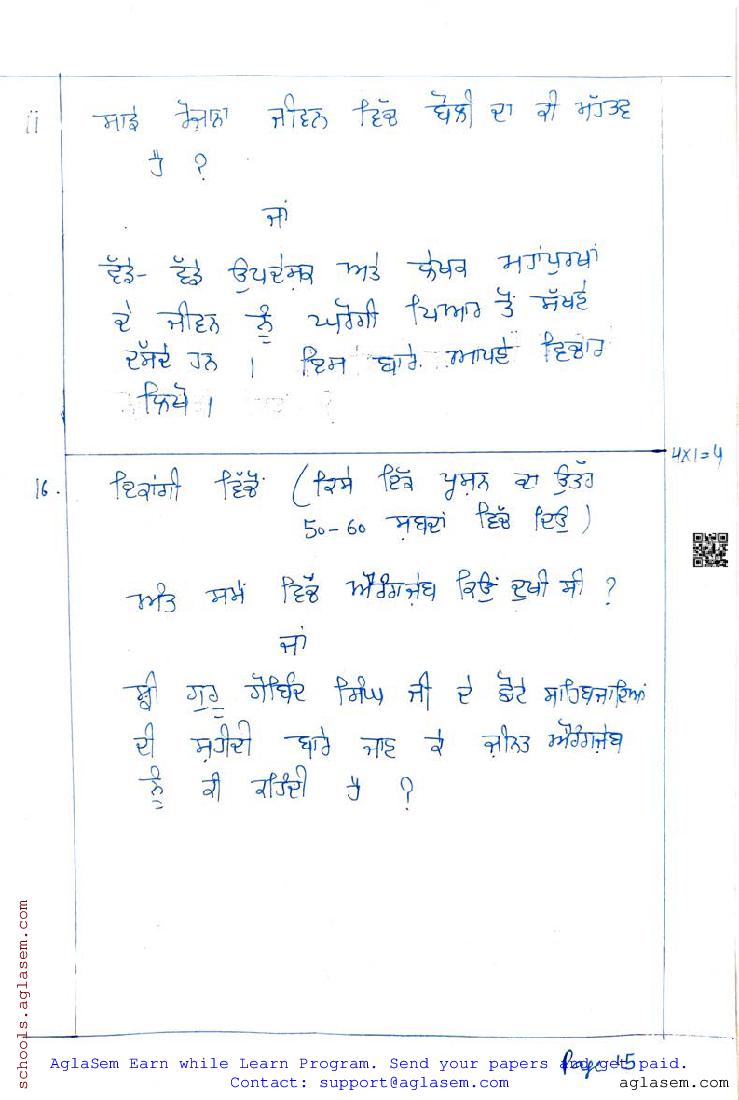 ii ਸਾਡੇ ਰੋਜ਼ਾਨਾ ਜੀਵਨ ਵਿੱਚ ਬੋਲੀ ਦਾ ਕੀ ਮਹੱਤਵ
ਹੈ ?
ਜਾਂ
ਵੱਡੇ- ਵੱਡੇ ਉਪਦੇਸ਼ਕ ਅਤੇ ਲੇਖਕ ਮਹਾਂਪੁਰਖਾਂ
ਦੇ ਜੀਵਨ ਨੂੰ ਘਰੋਗੀ ਪਿਆਰ ਤੋਂ ਸੱਖਣੇ
ਦੱਸਦੇ ਹਨ । ਇਸ ਬਾਰੇ ਆਪਣੇ ਵਿਚਾਰ
ਲਿਖੋ ।
4x1=4
16. ਇਕਾਂਗੀ ਵਿੱਚੋਂ (ਕਿਸੇ ਇੱਕ ਪ੍ਰਸ਼ਨ ਦਾ ਉੱਤਰ
50-60 ਸ਼ਬਦਾਂ ਵਿੱਚ ਦਿਓ)
ਅੰਤ ਸਮੇਂ ਵਿੱਚ ਔਰੰਗਜ਼ੇਬ ਕਿਉਂ ਦੁਖੀ ਸੀ ?
ਜਾਂ
ਸ਼੍ਰੀ ਗੁਰੂ ਗੋਬਿੰਦ ਸਿੰਘ ਜੀ ਦੇ ਛੋਟੇ ਸਾਹਿਬਜ਼ਾਦਿਆਂ
ਦੀ ਸ਼ਹੀਦੀ ਬਾਰੇ ਜਾਣ ਕੇ ਜ਼ੀਨਤ ਔਰੰਗਜ਼ੇਬ
ਨੂੰ ਕੀ ਕਹਿੰਦੀ ਹੈ ?
schools.aglasem.com
AglaSem Earn while Learn Program. Send your papers and get paid.
Contact: support@aglasem.com
aglasem.com